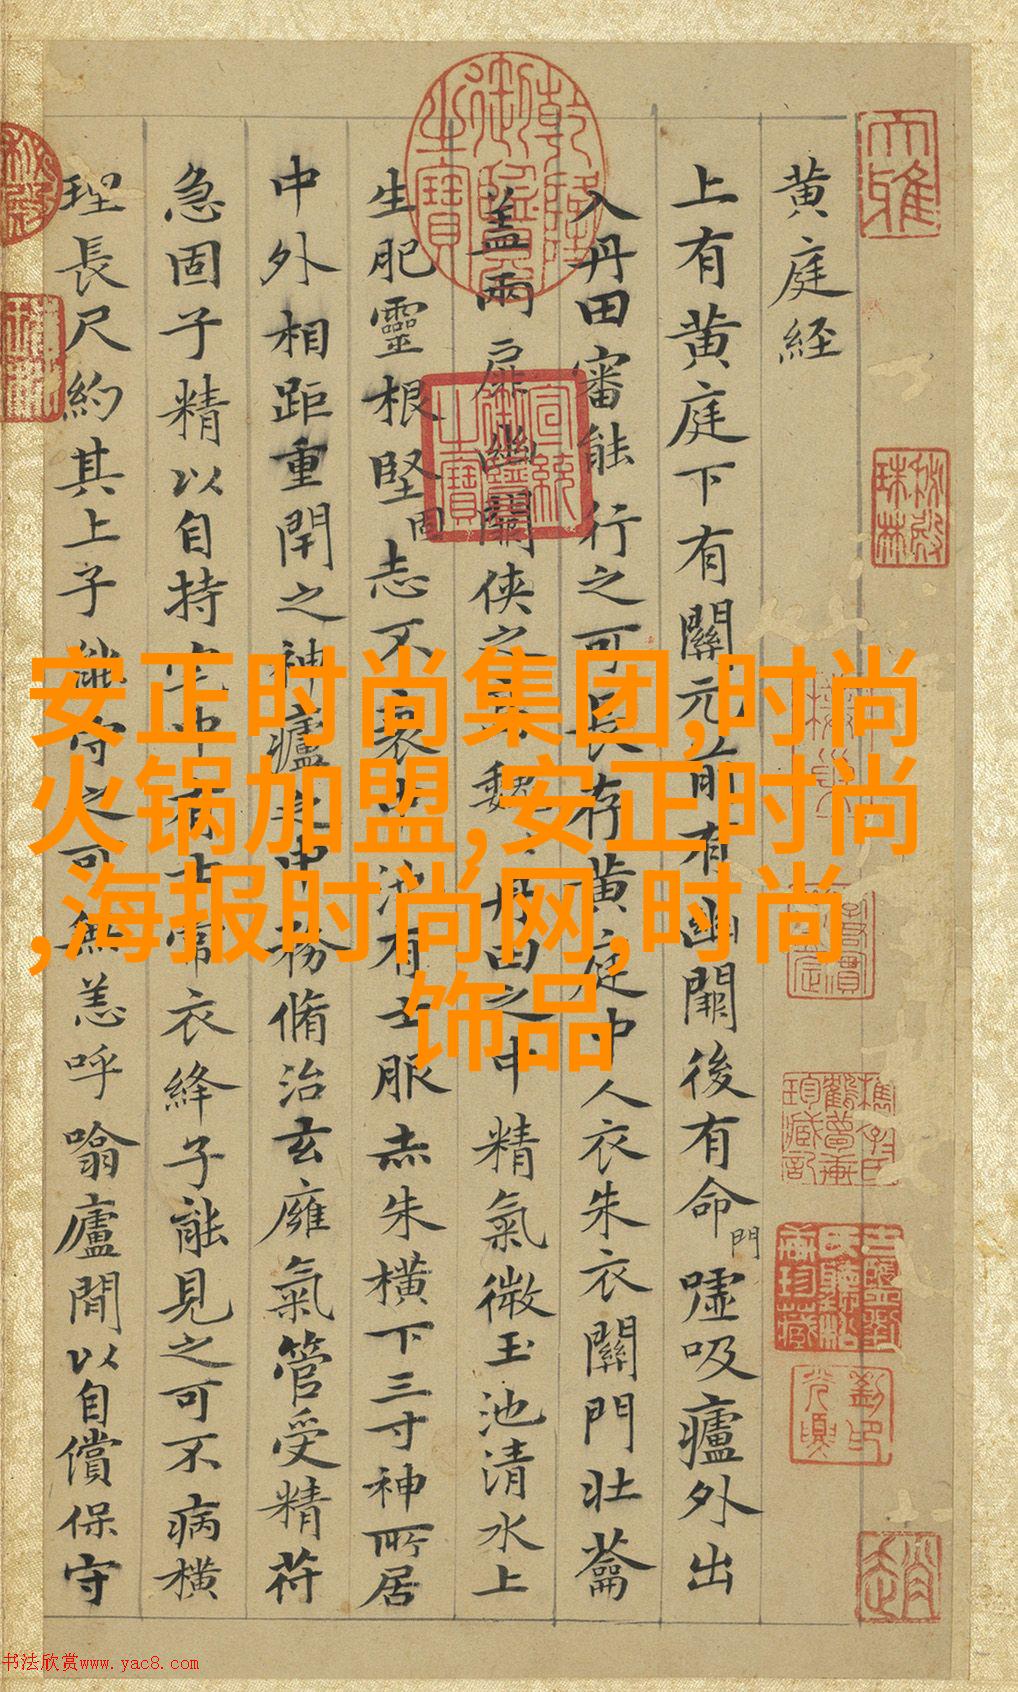 黄庭経
上有黄庭下有關元前有幽闕後有命門噓吸廬外出
入丹田審能行之可長存黄庭中人衣朱衣關門壯蘥
蓋兩扉幽關俠之
丹田之中精氣微玉池清水上
生肥靈根堅固志不衰
池有士服赤朱横下三寸神所居
中外相距重閉之神廬之中務脩治玄廱氣管受精苻
急固子精以自持宅中有士常衣絳子能見之可不病横
理長尺約其上子能守之可無恙呼噏廬間以自償保守
安正时尚集团,时尚
火锅加盟,安正时尚
,海报时尚网,时尚
饰品
书法欣赏www.yac8.com
大雅
乾隆御覽之寶
宣統御覽之寶